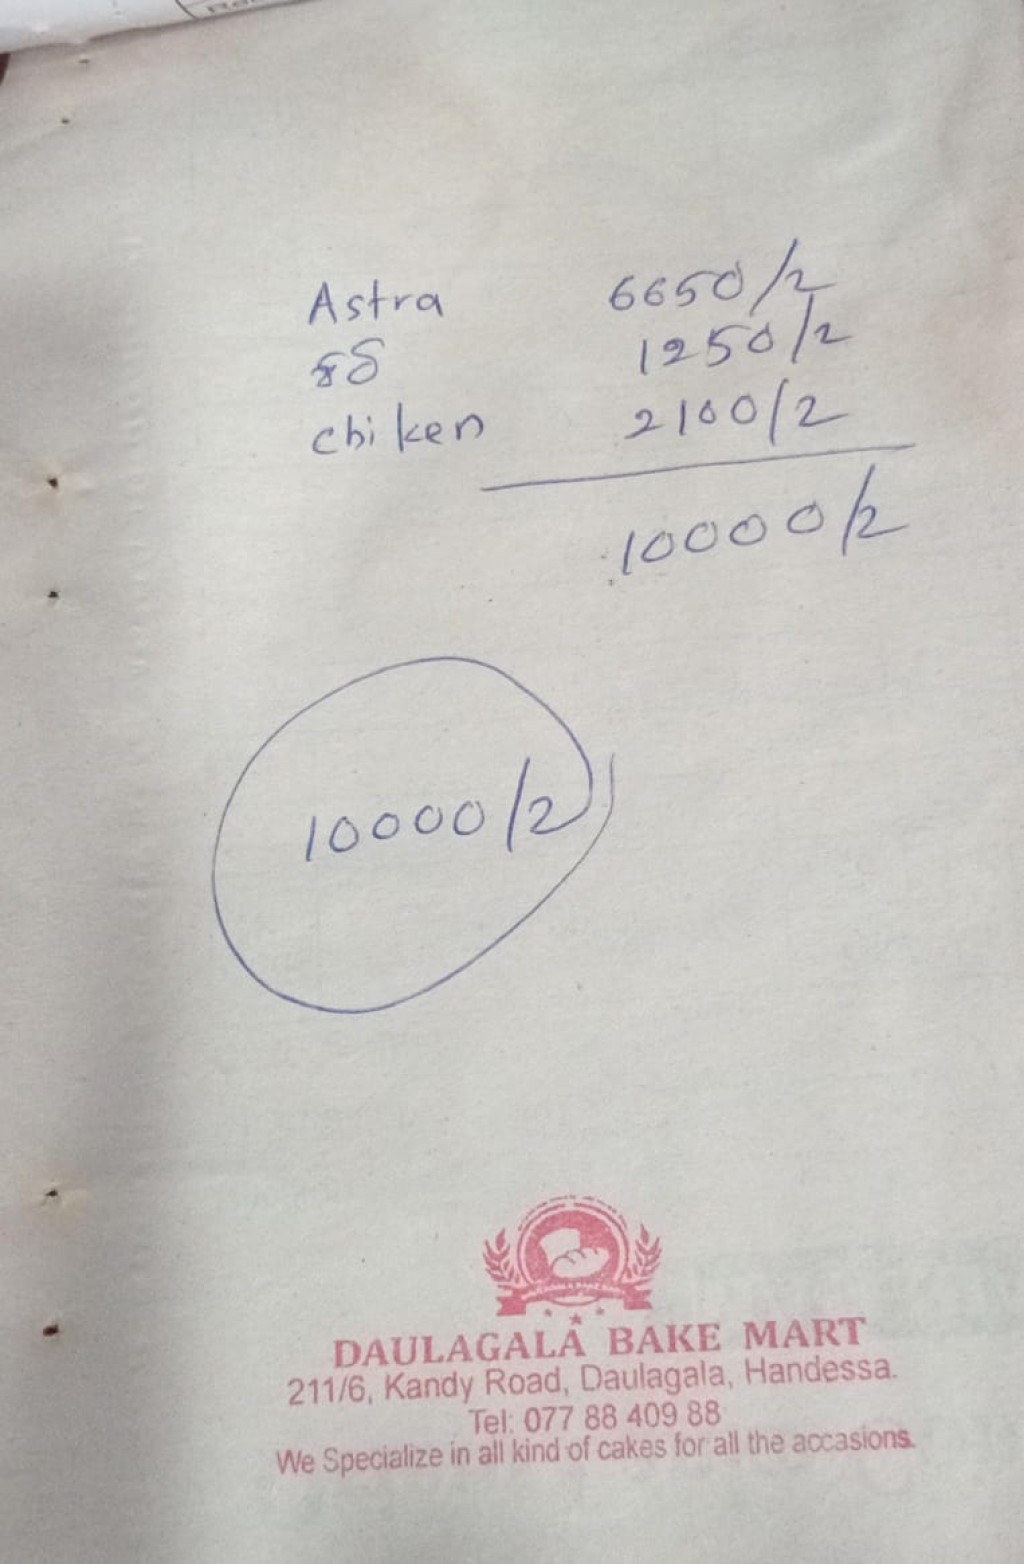 Astra 6650/2
1250/2
chiken 2100/2
10000/2
10000/2
DAULAGALA BAKE MART
211/6, Kandy Road, Daulagala, Handessa.
Tel: 077 88 409 88
We Specialize in all kind of cakes for all the accasions.